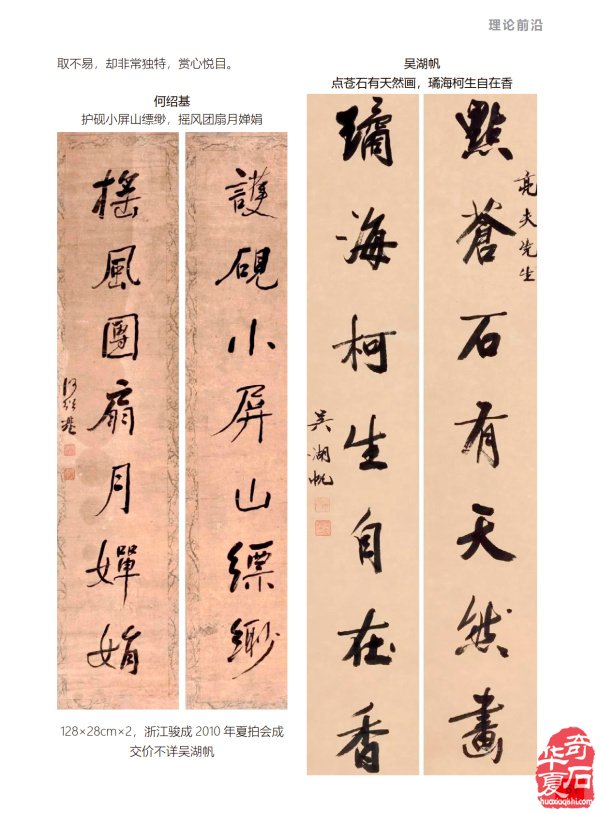 理论前沿
取不易，却非常独特，赏心悦目。
何绍基
护砚小屏山缥缈，摇风团扇月婵娟
護硯小屏山縹緲
搖風團扇月嬋娟
何紹基
128×28cm×2，浙江骏成 2010 年夏拍会成
交价不详吴湖帆
吴湖帆
点苍石有天然画，璚海柯生自在香
點蒼石有天然畫
亮夫先生
璚海柯生自在香
吴湖帆
华夏奇石
huaxiaqishi.com